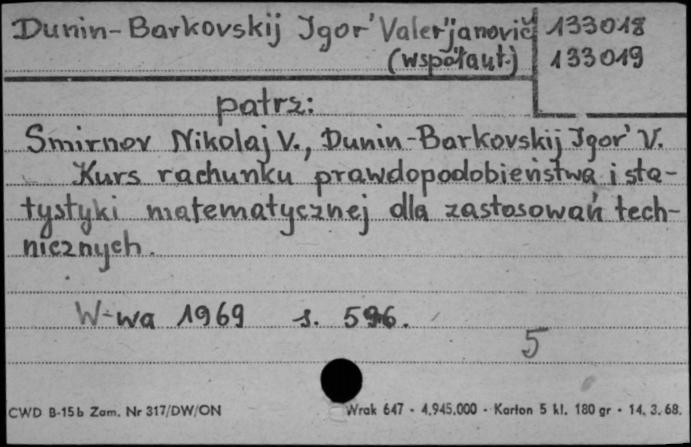 Dunin-Barkovskij Igor' Valer'janovič 133018
(współaut.) 133019
patrz:
Smirnov Nikolaj V., Dunin-Barkovskij Igor' V.
Kurs rachunku prawdopodobieństwa i sta-
tystyki matematycznej dla zastosowań tech-
nicznych.
W-wa 1969 s. 596.
5
CWD B-15b Zam. Nr 317/DW/ON Wrak 647 - 4.945.000 - Karton 5 kl. 180 gr - 14. 3. 68.